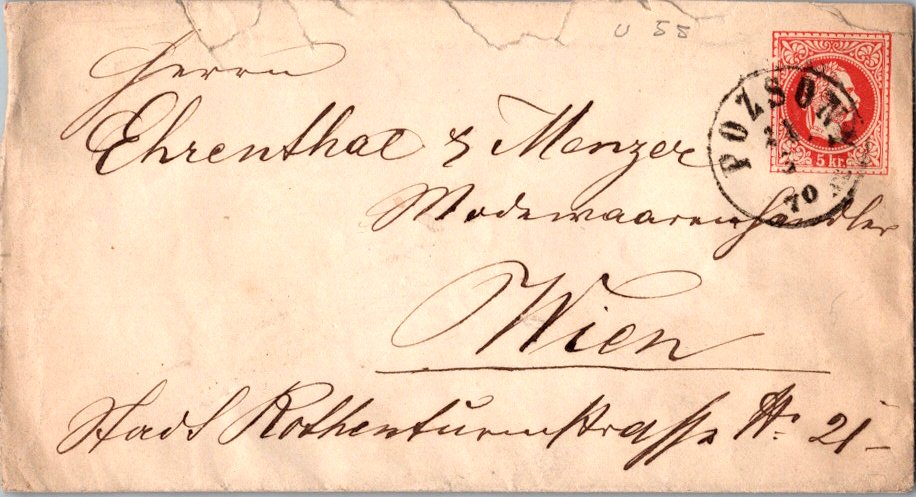 U 55
Herrn
Ehrenthal & Menzer
Modewaarenhändler
Wien
Stadt Rothenturmstrasse No. 21
POZSON
70
5 kr.